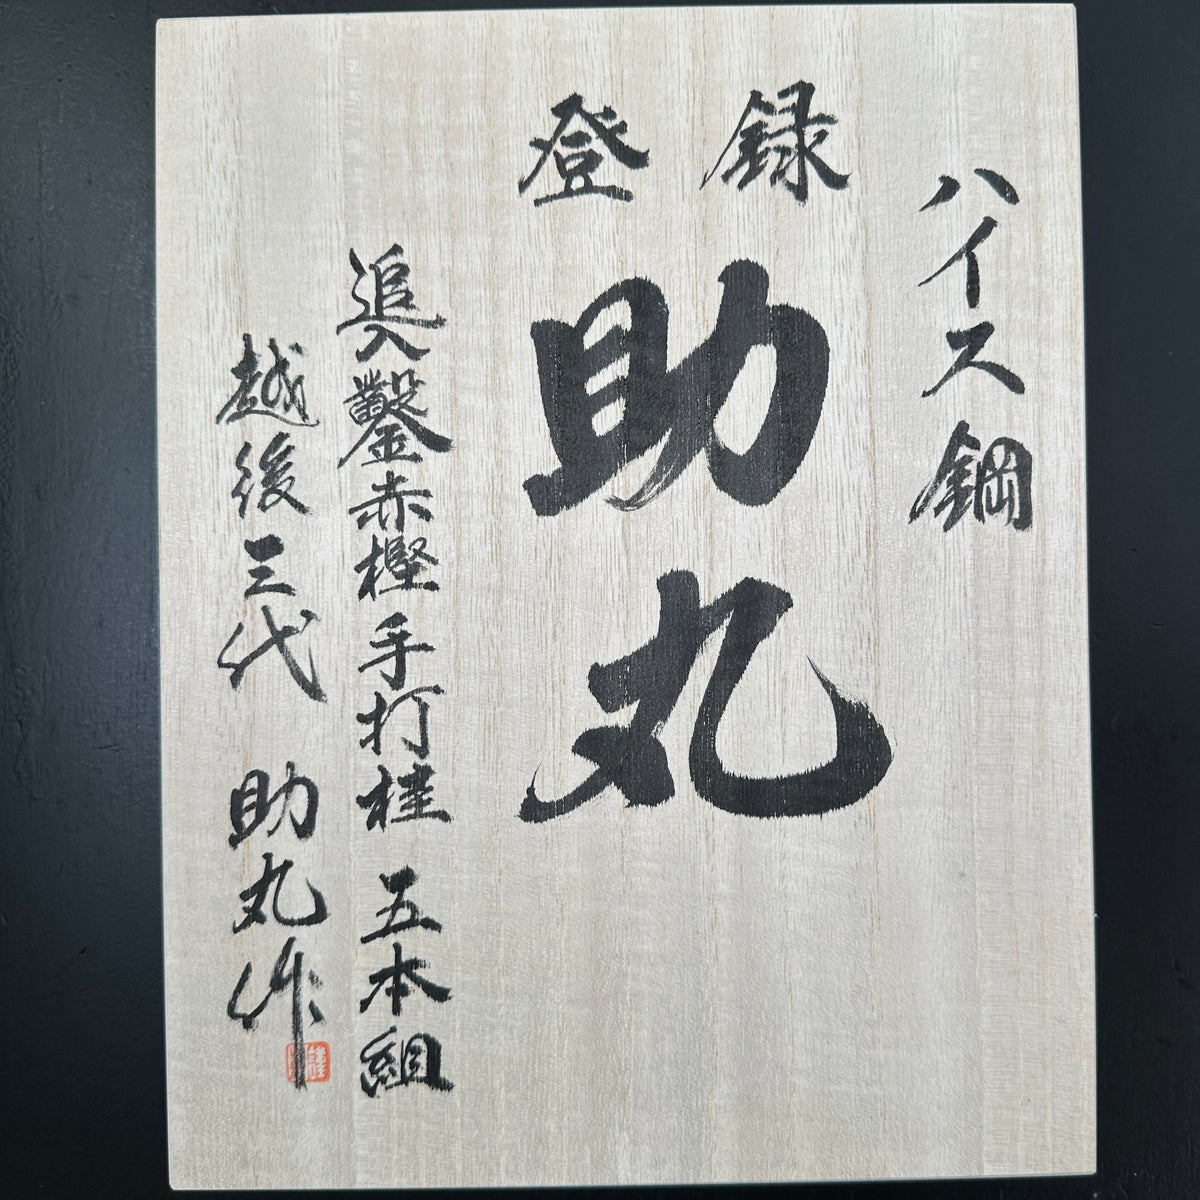 ハイス鋼
登録
助丸
追入鑿赤樫手打桂 五本組
越後三代 助丸作